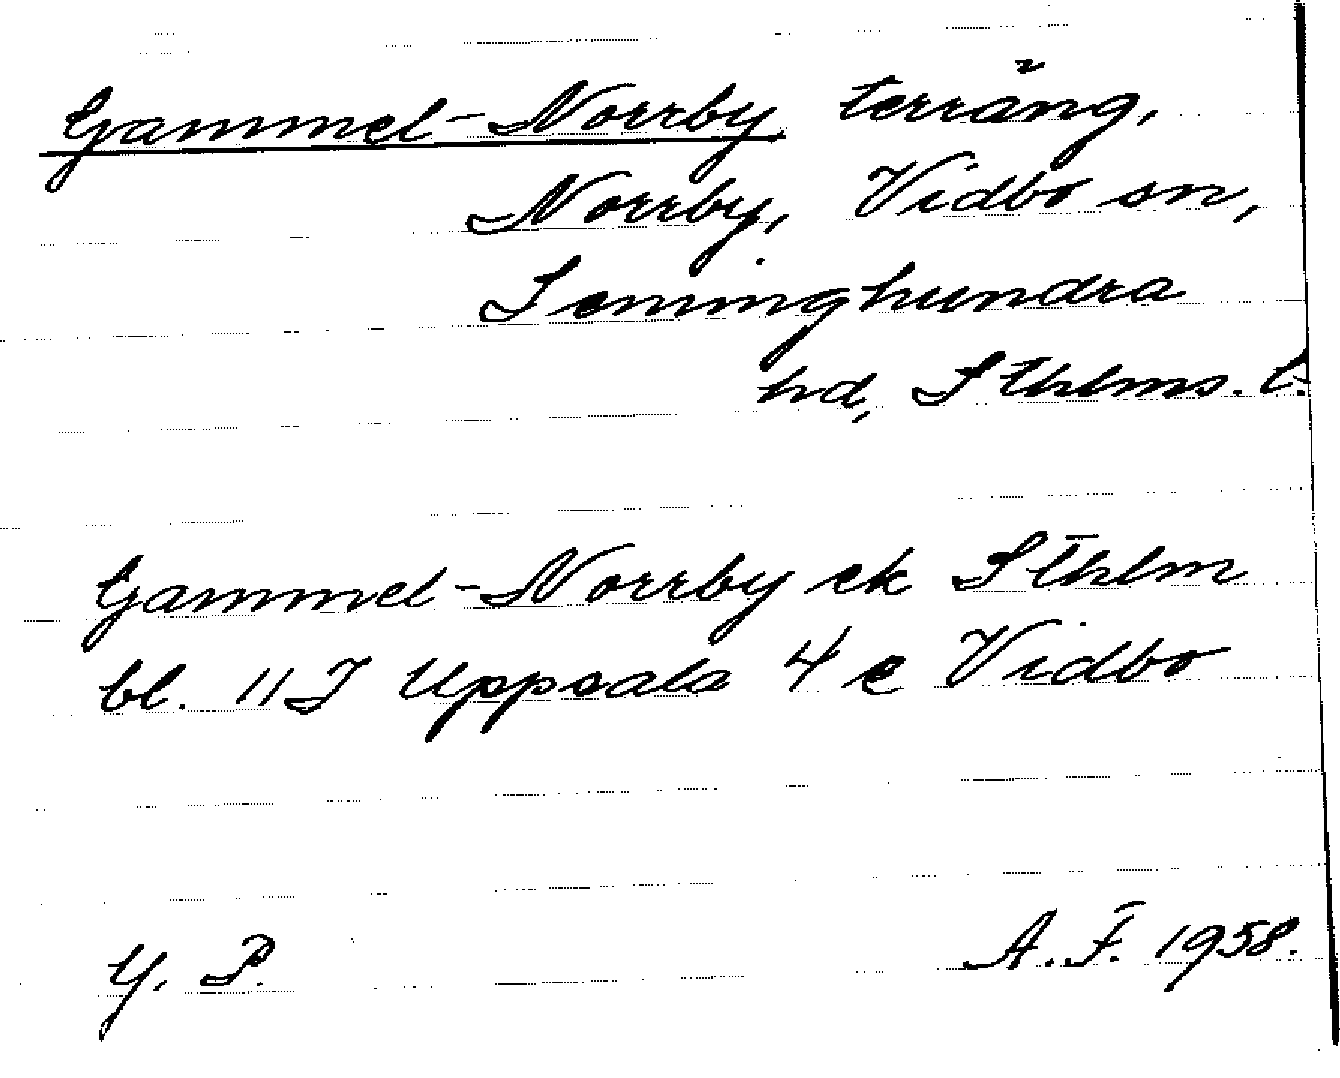 Gammel-Norrby terräng,
Norrby, Vidbo sn,
Seminghundra
hd, Sthlms. l.
Gammel-Norrby ek Sthlm
bl. 11 I Uppsala 4 e Vidbo
G. P.
A. F. 1958.